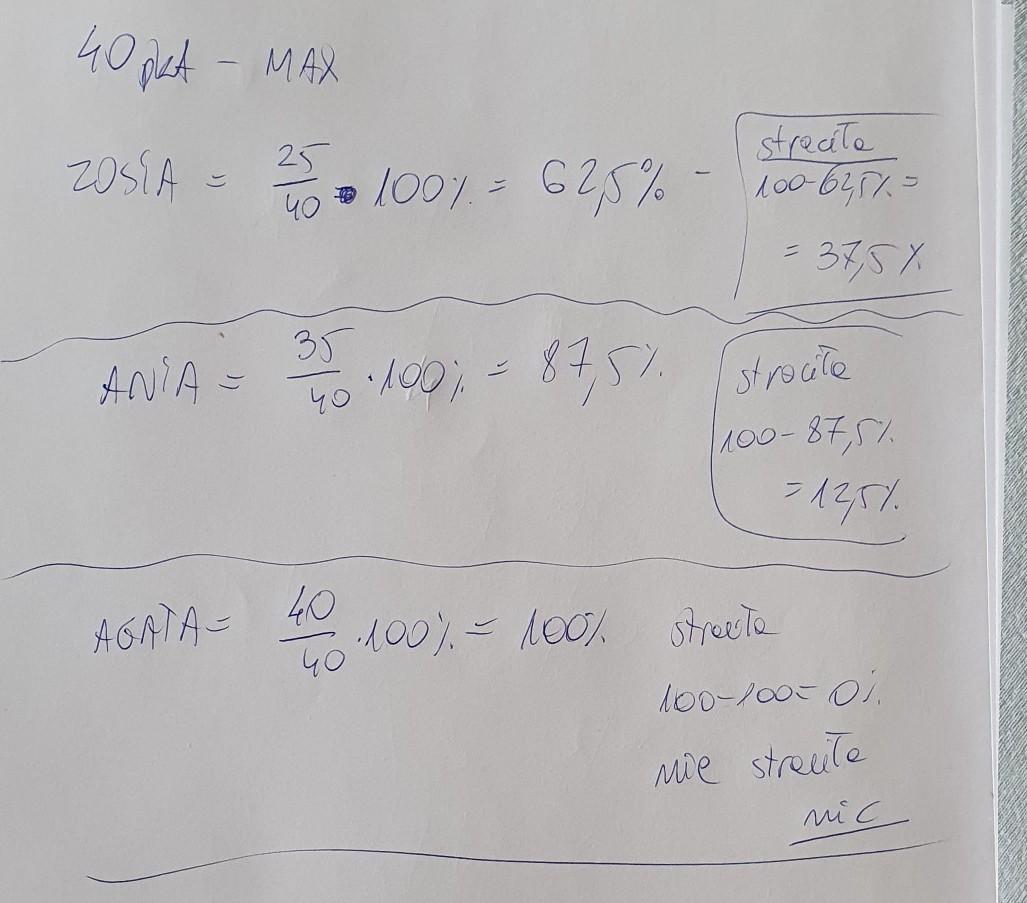 40 pkt - MAX
ZOSIA = 25/40 · 100% = 62,5% -
straciła
100-62,5% =
= 37,5%
ANIA = 35/40 · 100% = 87,5%
straciła
100-87,5%
= 12,5%
AGATA = 40/40 · 100% = 100% straciła
100-100= 0%
nie straciła
nic